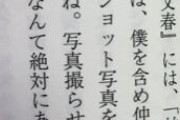 文春』には、
は、僕を含め仲
ショット写真を
ね。写真撮らせ
なんて絶対にあ